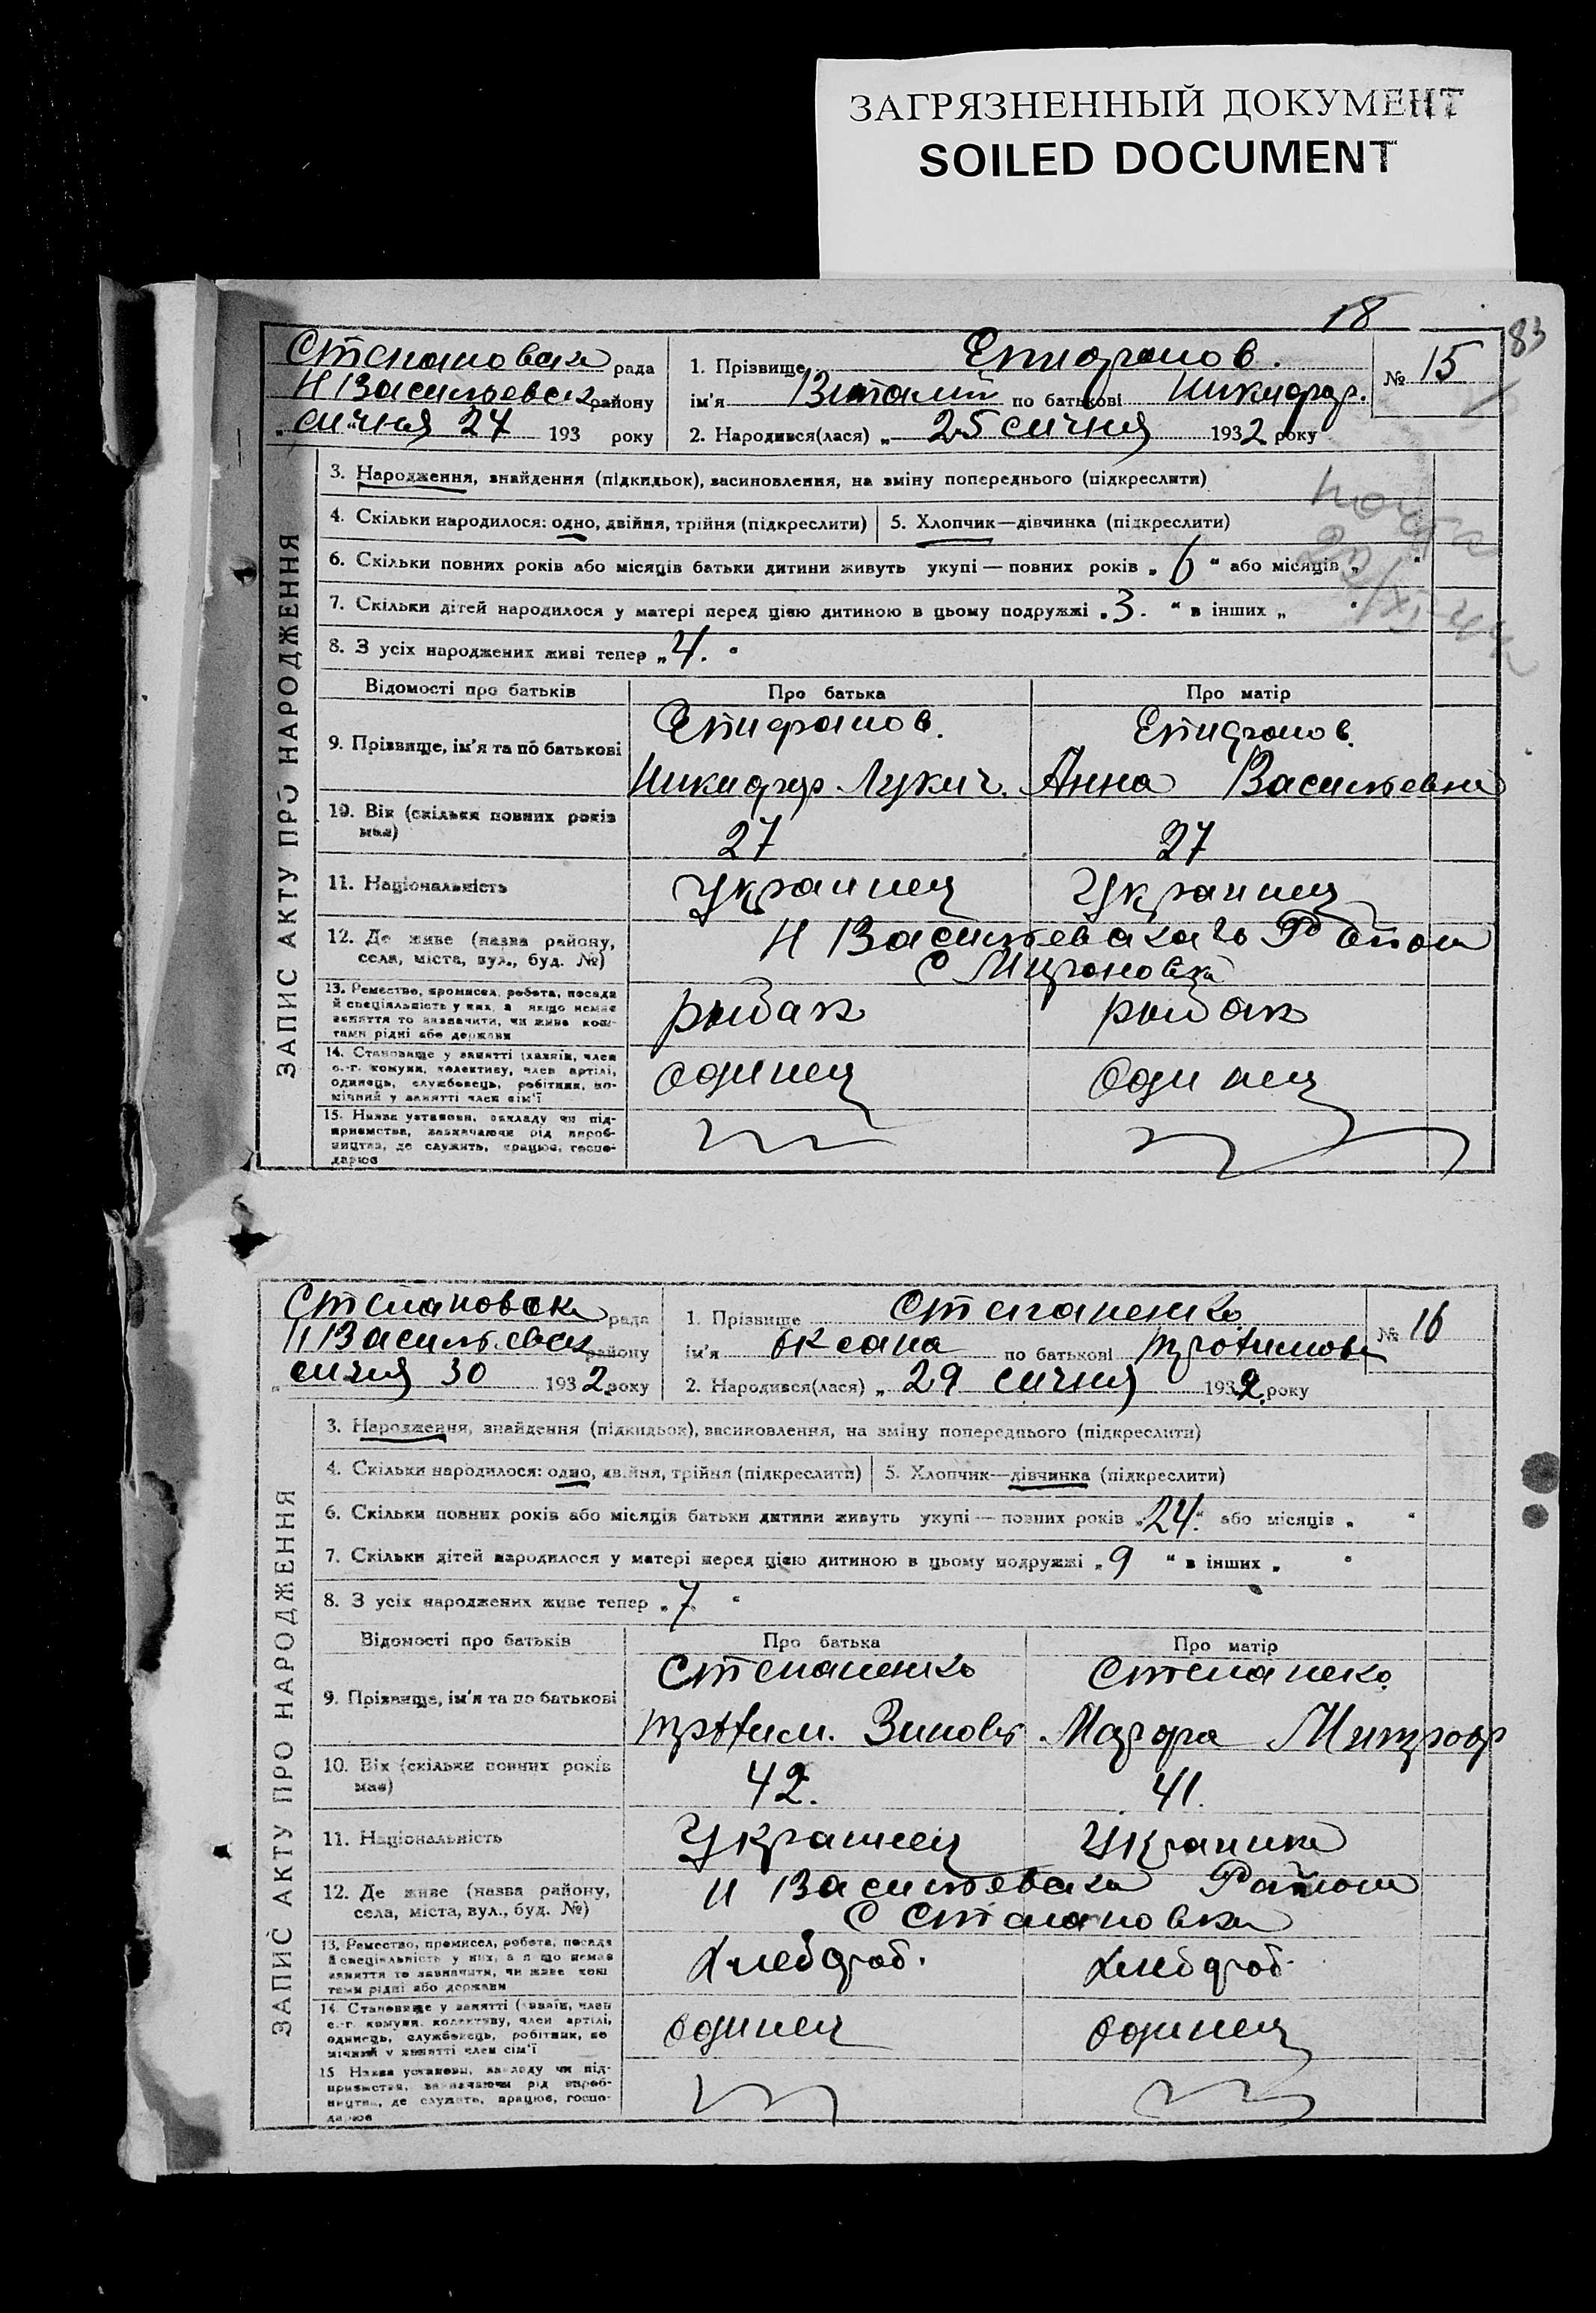 ЗАГРЯЗНЕННЫЙ ДОКУМЕНТ
SOILED DOCUMENT
18
83
Степановска рада
Н Васильевск району
сичня 27 193 року
1. Прізвище Епифанов.
ім'я Виталий по батькові Никифор.
2. Народився(лася) „ 25 сичня 1932 року
№ 15
ЗАПИС АКТУ ПРО НАРОДЖЕННЯ
3. Народження, знайдення (підкидьок), засиновлення, на зміну попереднього (підкреслити)
4. Скільки народилося: одно, двійня, трійня (підкреслити) 5. Хлопчик—дівчинка (підкреслити)
6. Скільки повних років або місяців батьки дитини живуть укупі — повних років „ 6 “ або місяців „ “
7. Скільки дітей народилося у матері перед цією дитиною в цьому подружжі „ 3. “ в інших „ “
8. З усіх народжених живі тепер „ 4. “
Відомості про батьків Про батька Про матір
9. Прізвище, ім'я та по батькові
Епифанов. Епифанов.
Никифор Лукич. Анна Васильевна
10. Вік (скільки повних років має)
27 27
11. Національність Украинец Украинец
12. Де живе (назва району, села, міста, вул., буд. №)
Н Васильевскаго Район
С Мироновка
13. Ремество, промисел, робота, посада
й спеціяльність у них, а якщо немає
заняття то зазначити, чи живе кош-
тами рідні або держави
рыбак рыбак
14. Становище у занятті (хазяїн, член
с.-г. комуни, колективу, член артілі,
одинець, службовець, робітник, по-
мічний у занятті член сім'ї
одинец одинец
15. Назва установи, закладу чи під-
приємства, зазначаючи рід вироб-
ництва, де служить, працює, госпо-
дарює
Степановска рада
Н Васильевск району
сичня 30 1932 року
1. Прізвище Степаненко
ім'я Оксана по батькові Трофимовн
2. Народився(лася) „ 29 сичня 1932 року
№ 16
ЗАПИС АКТУ ПРО НАРОДЖЕННЯ
3. Народження, знайдення (підкидьок), засиновлення, на зміну попереднього (підкреслити)
4. Скільки народилося: одно, двійня, трійня (підкреслити) 5. Хлопчик—дівчинка (підкреслити)
6. Скільки повних років або місяців батьки дитини живуть укупі — повних років „ 24. “ або місяців „ “
7. Скільки дітей народилося у матері перед цією дитиною в цьому подружжі „ 9 “ в інших „ “
8. З усіх народжених живе тепер „ 7 “
Відомості про батьків Про батька Про матір
9. Прізвище, ім'я та по батькові
Степаненко Степанеко
Трофим. Зиновь Марфа Митроф
10. Вік (скільки повних років має)
42. 41.
11. Національність Украинец Украинка
12. Де живе (назва району, села, міста, вул., буд. №)
Н Васильевска Район
С Степановка
13. Ремество, промисел, робота, посада
й спеціяльність у них, а якщо немає
заняття то зазначити, чи живе кош
тами рідні або держави
Хлебороб. Хлебороб.
14. Становище у занятті (хазяїн, член
с.-г. комуни, колективу, член артілі,
одинець, службовець, робітник, по
мічний у занятті член сім'ї
одинец одинец
15. Назва установи, закладу чи під-
приємства, зазначаючи рід вироб-
ництва, де служить, працює, госпо-
дарює